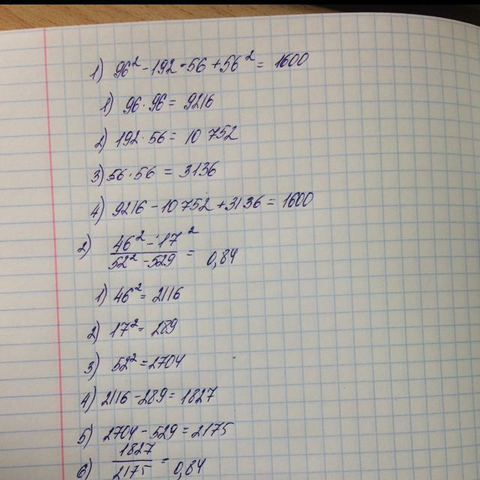 1) 96² - 192 · 56 + 56² = 1600
1) 96 · 96 = 9216
2) 192 · 56 = 10 752
3) 56 · 56 = 3136
4) 9216 - 10 752 + 3136 = 1600
2) 46² - 17² / 52² - 529 = 0,84
1) 46² = 2116
2) 17² = 289
3) 52² = 2704
4) 2116 - 289 = 1827
5) 2704 - 529 = 2175
6) 1827 / 2175 = 0,84